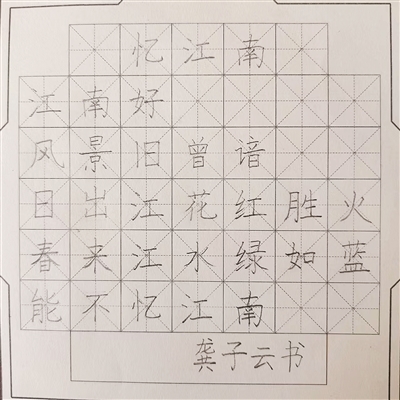 忆江南
江南好
风景旧曾谙
日出江花红胜火
春来江水绿如蓝
能不忆江南
龚子云书